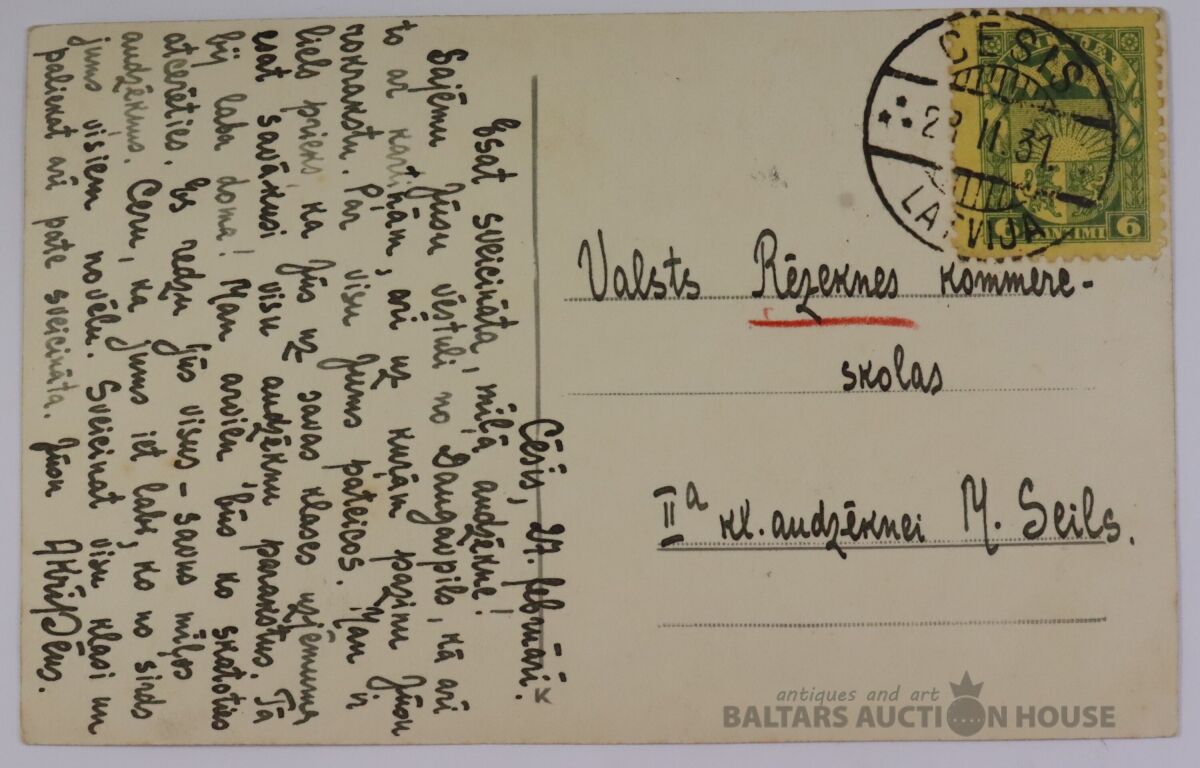 Cēsis, 27. februārī.
Esat sveicināta, mīļā audzēkne!
Saņēmu Jūsu vēstuli no Daugavpils, kā arī
to ar kartiņām, arī uz kurām pazinu Jūsu
rokrakstu. Par visu Jums pateicos. Man ir
liels prieks, ka Jūs uz savas klases uzņēmuma
esat savākusi visu audzēkņu parakstus. Tā
bij laba doma! Man arvien būs ko skatoties
atcerēties. Es redzu jūs visus - savus mīļos
audzēkņus. Ceru, ka jums iet labi, ko no sirds
jums visiem novēlu. Sveicinat visu klasi un
palienat arī pate sveicināta. Jūsu
K
CESIS
2 II. 31.
LATVIJA
LATVIJA
6 SANTIMI 6
Valsts Rēzeknes kommerc-
skolas
IIa kl. audzēknei M. Seils.
antiques and art
BALTARS AUCTION HOUSE